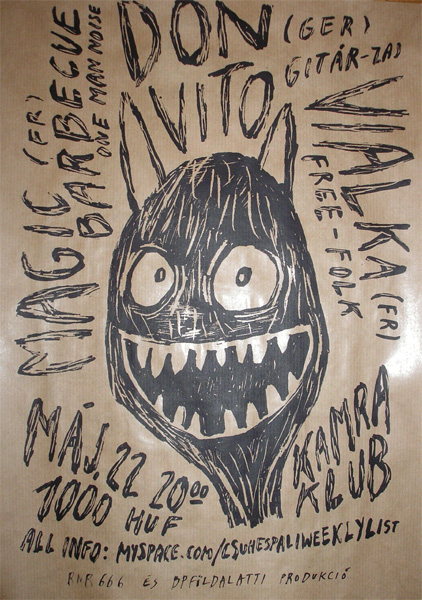 DON
VITO
(GER)
GITÁR-ZAJ
MAGIC (FR)
BARBECUE
ONE MAN NOISE
VIALKA (FR)
FREE-FOLK
MÁJ. 22 20⁰⁰
1000 HUF
KAMRA
KLUB
ALL INFO: MYSPACE.COM/CSUHESPALIWEEKLYLIST
RNR666 ÉS BPFÖLDALATTI PRODUKCIÓ